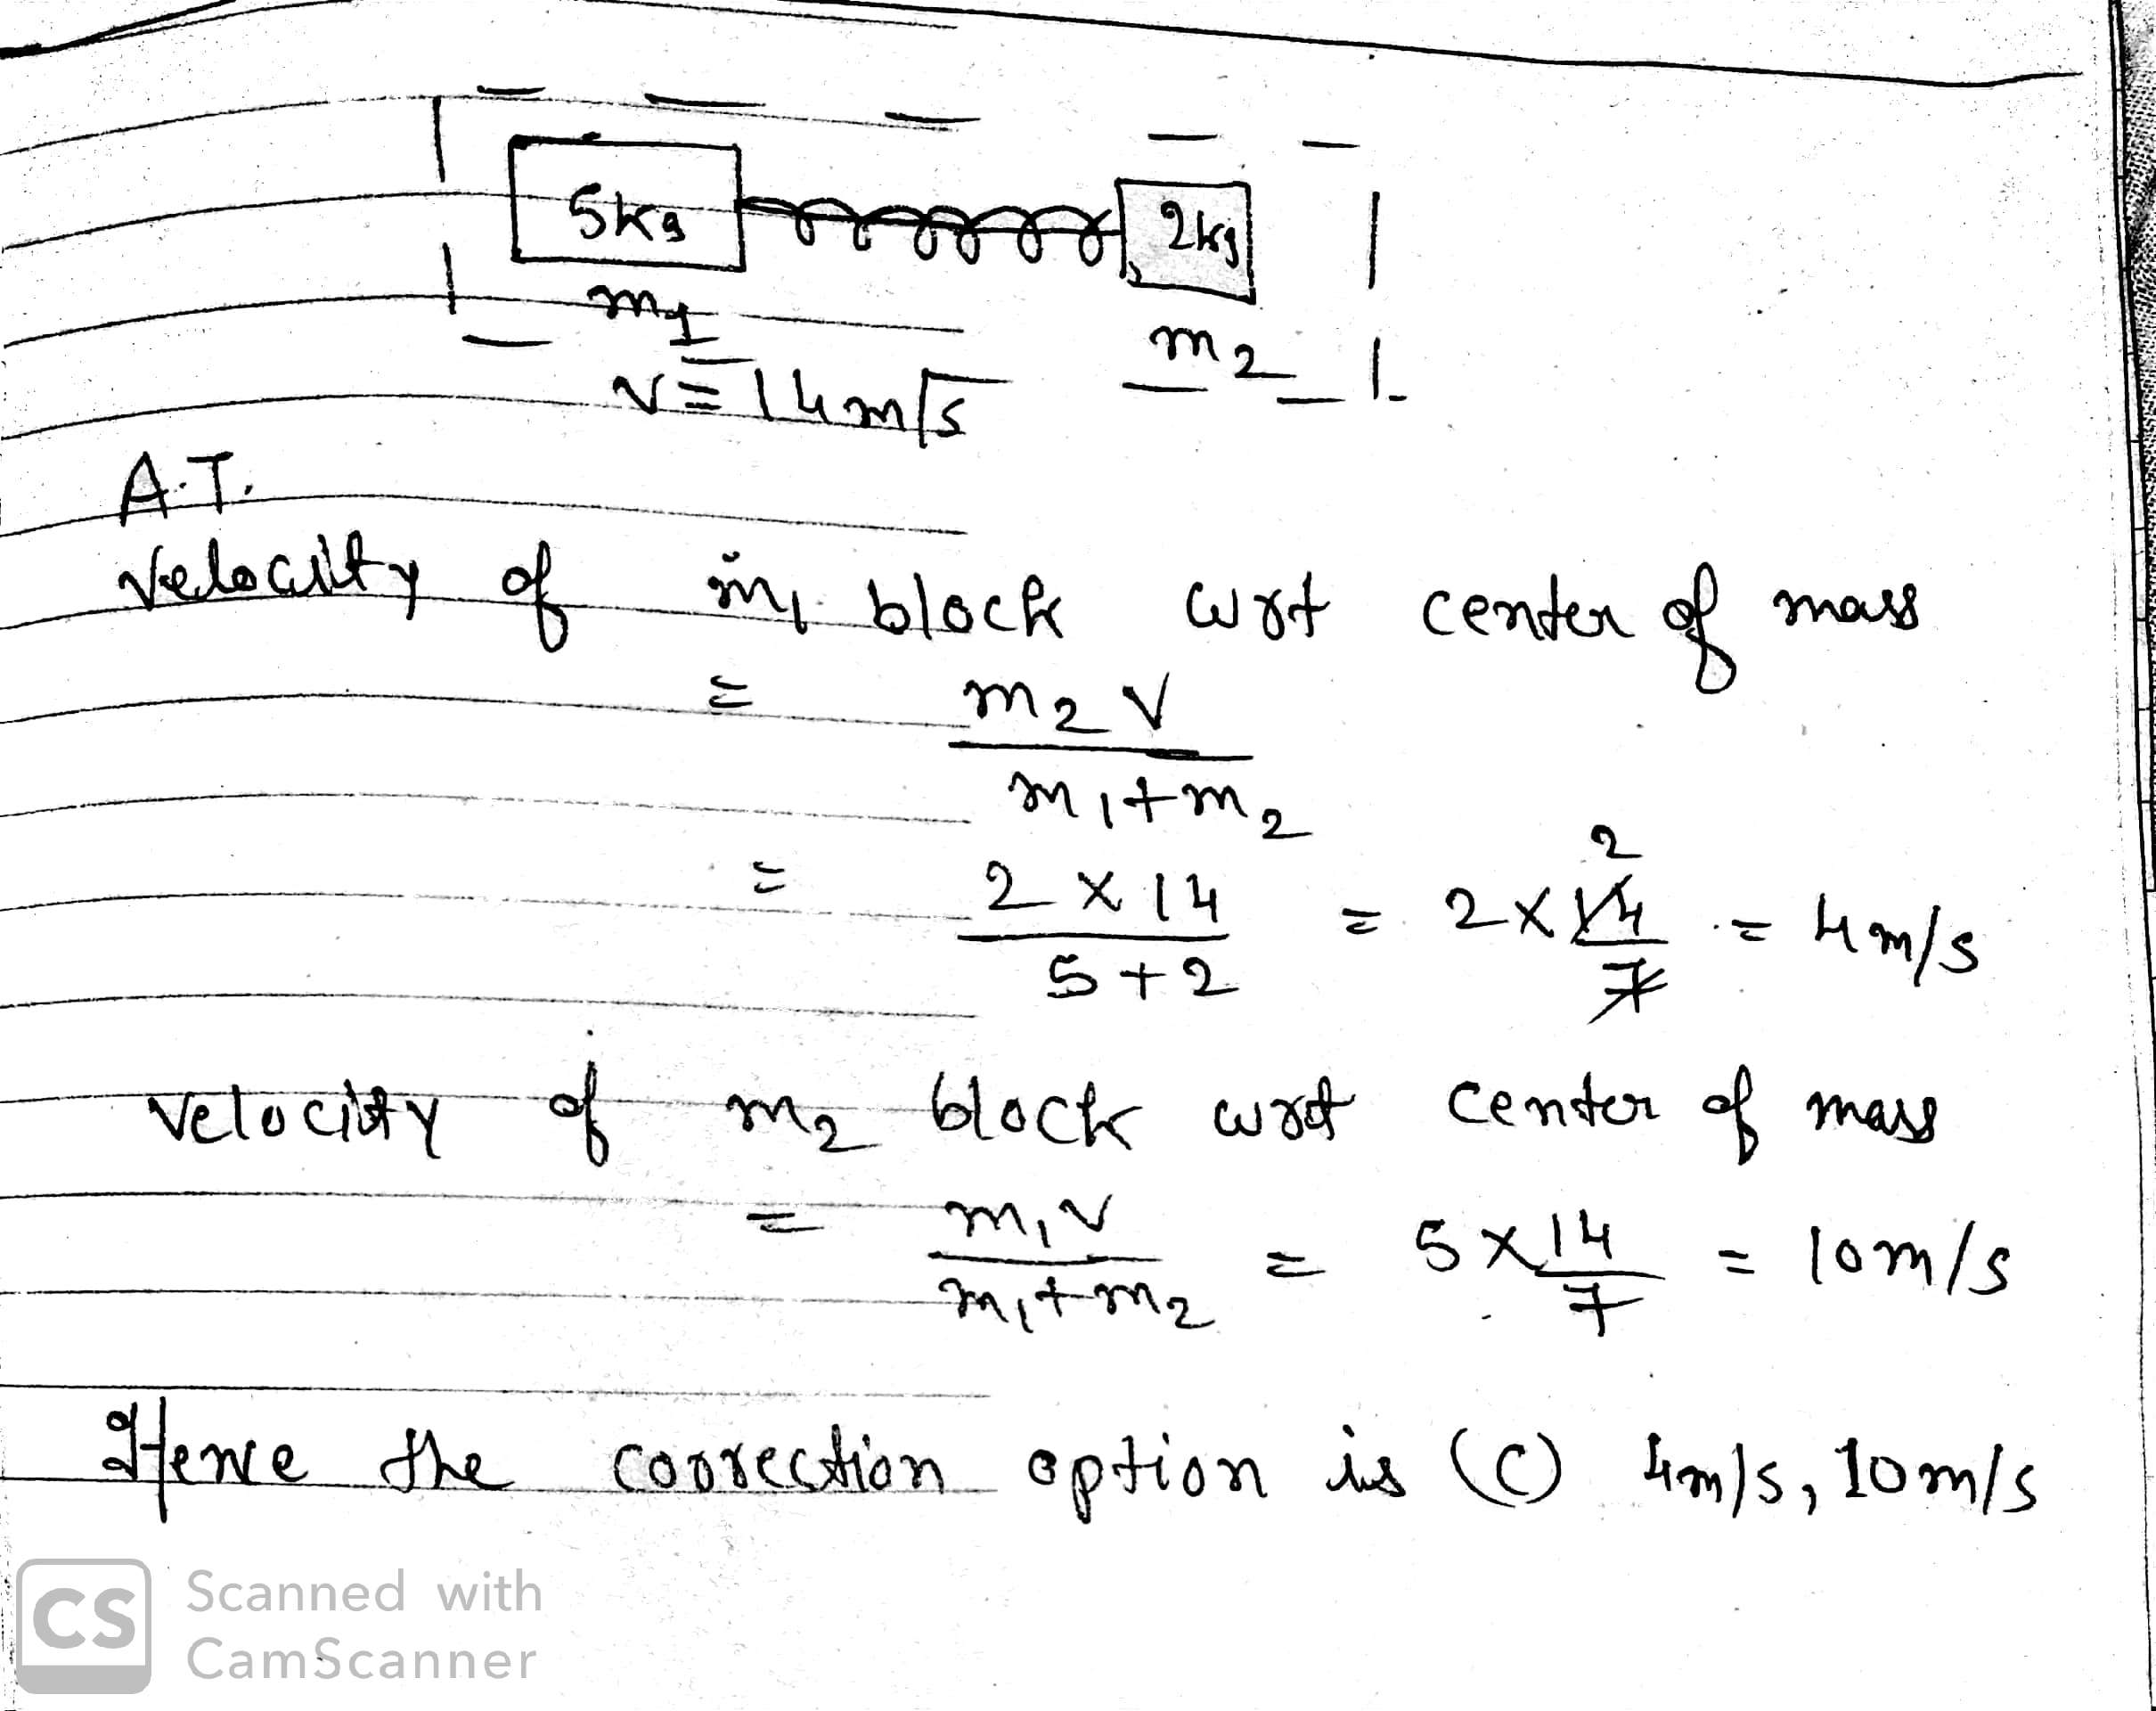 5kg 2kg
m1 m2
v = 14m/s
A.T.
Velocity of m1 block wrt center of mass
= m2 v / m1+m2
= 2 × 14 / 5+2 = 2 × 14 / 7 2 = 4m/s
velocity of m2 block wrt center of mass
= m1v / m1+m2 = 5 × 14 / 7 = 10m/s
Hence the correction option is (C) 4m/s, 10m/s
CS Scanned with
CamScanner